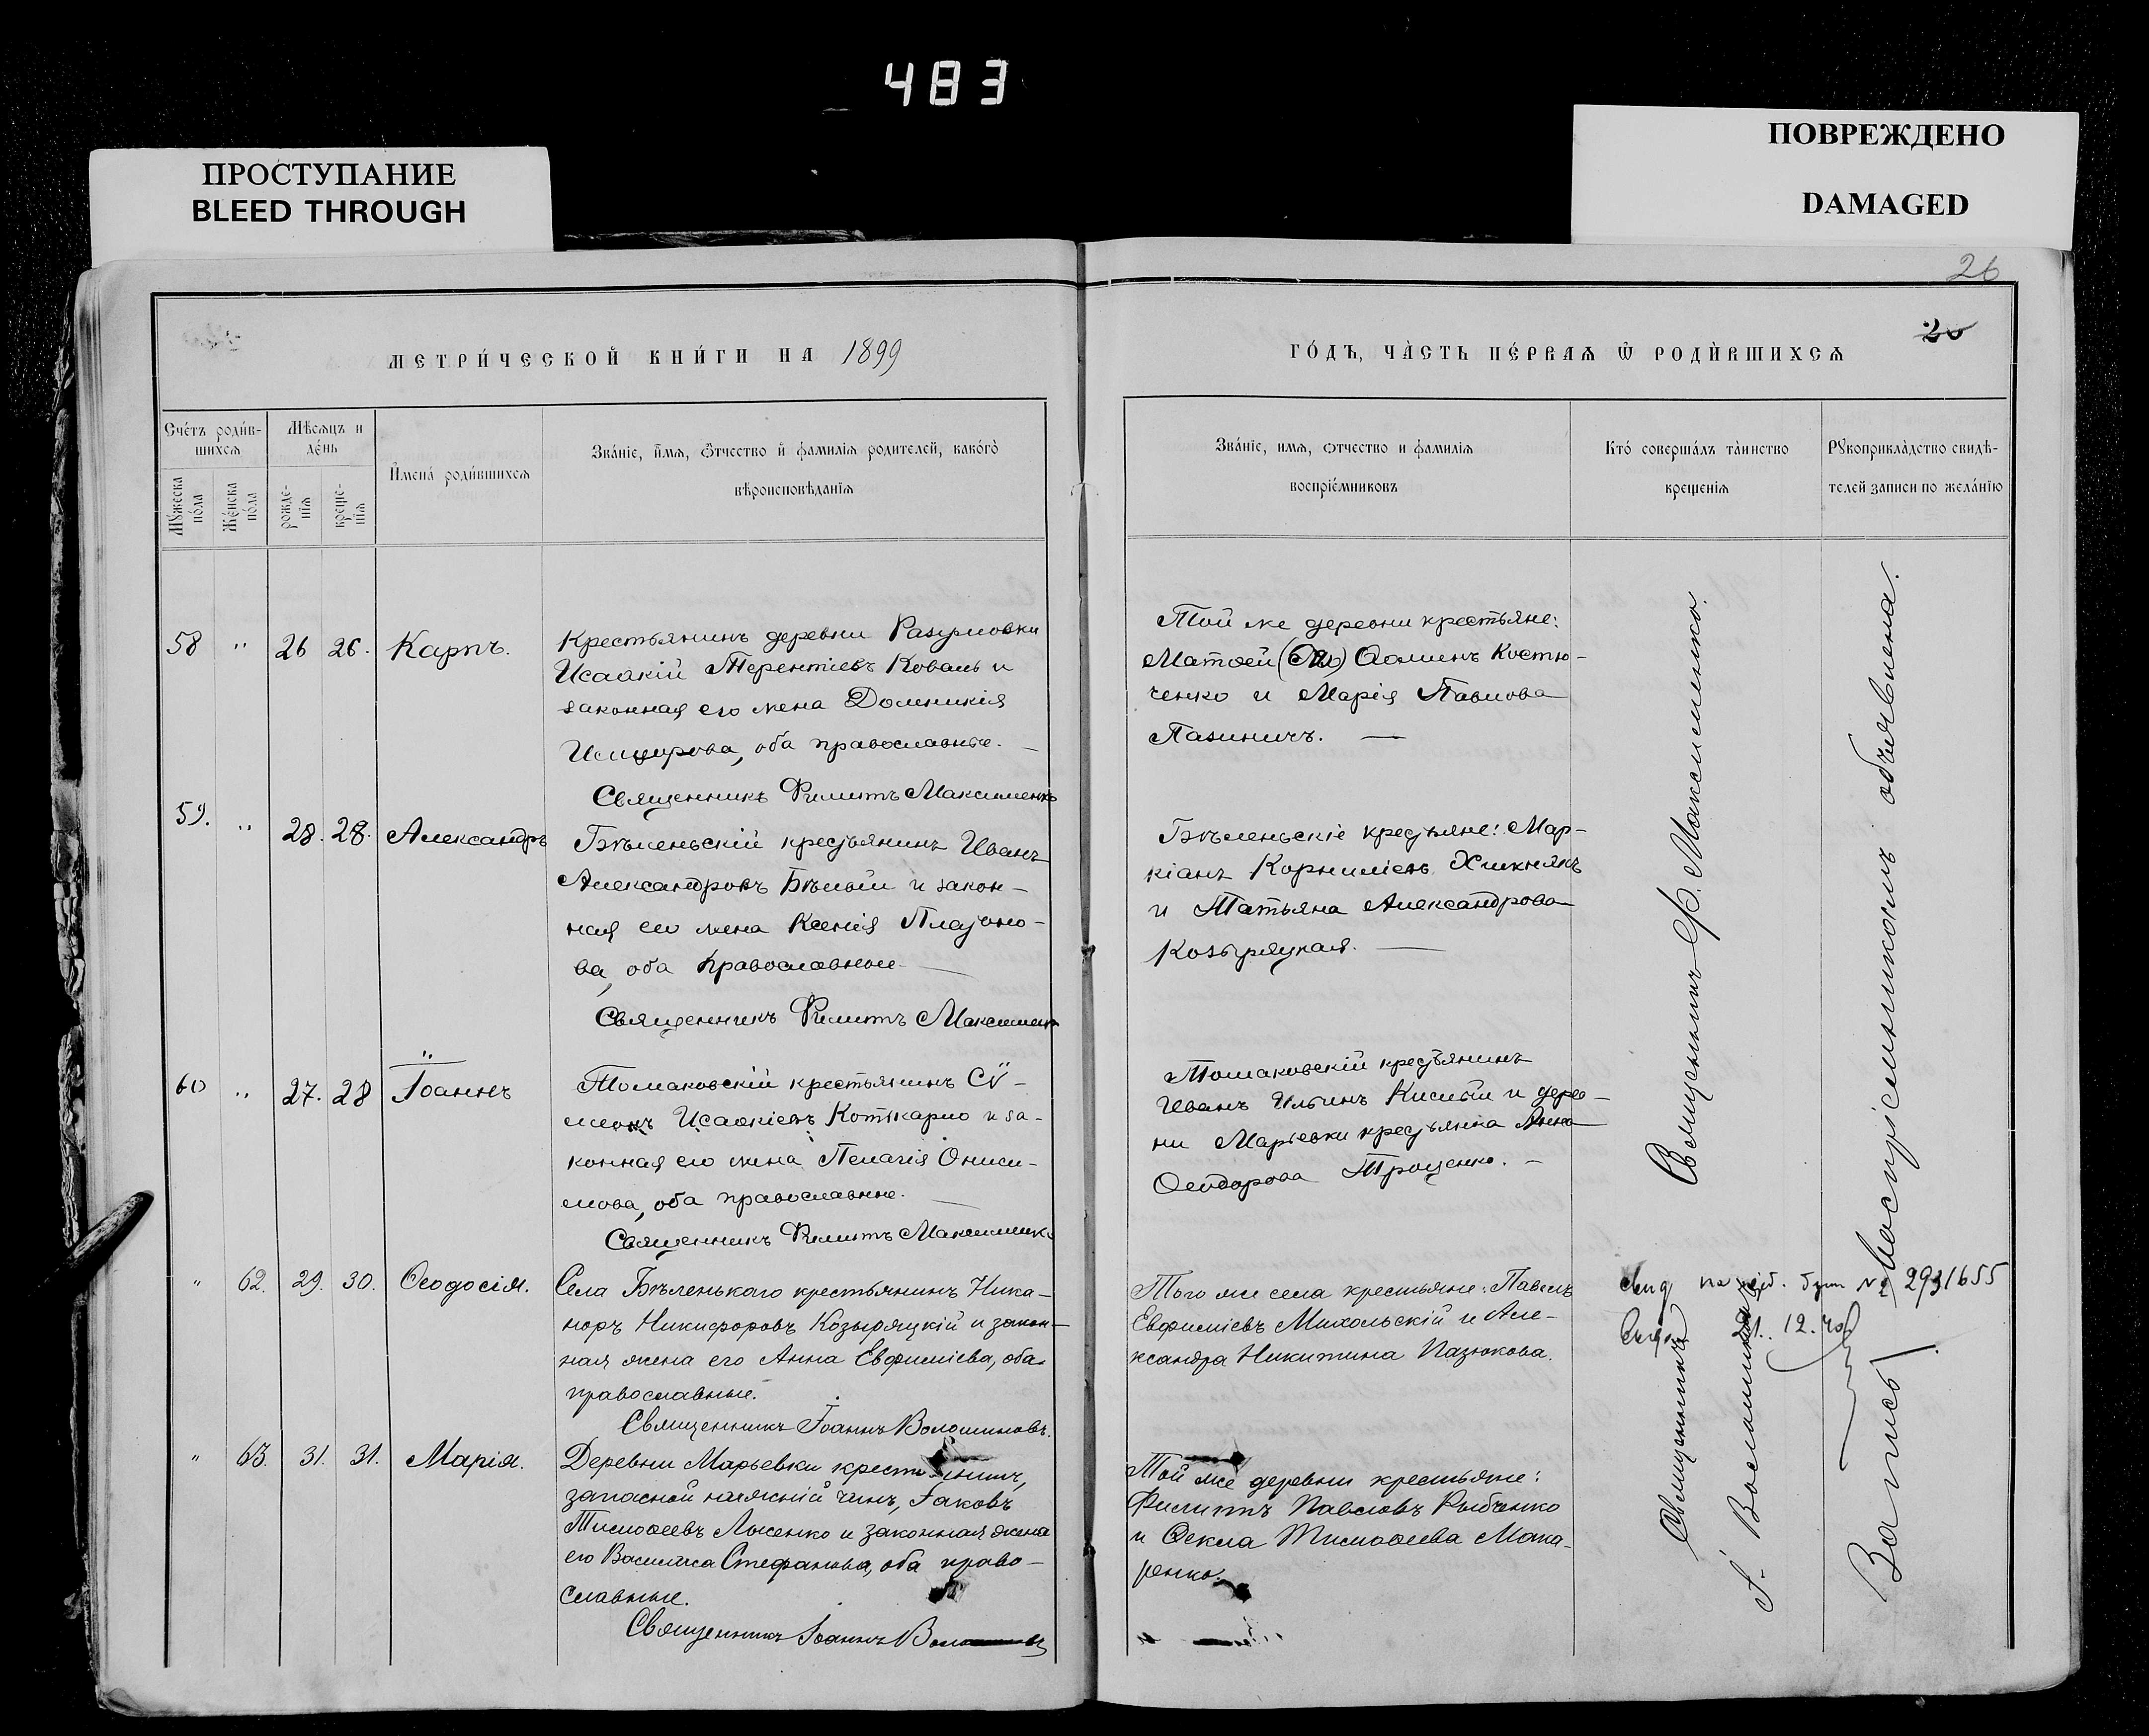 483
ПРОСТУПАНИЕ
BLEED THROUGH
ПОВРЕЖДЕНО
DAMAGED
26
20
МЕТРИ́ЧЕСКОЙ КНИ́ГИ НА 1899
ГО́ДЪ, ЧА̀СТЬ ПЕ́РВАѦ Ѿ РОДЍВШИХСѦ
Сче́тъ роди́в-
шихсѧ
Мꙋ́жеска
по́ла
Же́нска
по́ла
Мѣ́сѧцъ и
де́нь
рожде-
нїѧ
креще-
нїѧ
И҆мена̀ роди́вшихсѧ
Зва́нїе, и҆́мѧ, ѻ҆́тчество и҆ фамилїѧ родителей, како́гѡ
вѣроисповѣ́данїѧ
Зва́нїе, имѧ, ѻтчество и фамилїѧ
воспрїе́мниковъ
Кто́ соверша́лъ та̀инство
креще́нїѧ
Рꙋкоприкла̀дство свидѣ́-
телей записи по жела́нїю
58 " 26 26. Карпъ.
Крестьянинъ деревни Разумовки
Исаакій Терентіевъ Коваль и
законная его жена Домникія
Исидорова, оба православные. —
Священникъ Филиппъ Максименко
Той же деревни крестьяне:
Матѳей Ѳоминъ Костю-
ченко и Марія Павлова
Пазиничъ. —
59. " 28. 28. Александръ
Бѣленьскій крестьянинъ Иванъ
Александровъ Бѣлый и закон-
ная его жена Ксенія Платоно-
ва, оба православные —
Священникъ Филиппъ Максименко
Бѣленьскіе крестьяне: Мар-
кіанъ Корниліевъ
и Татьяна Александрова
Козыряцкая. —
60 " 27. 28 Іоаннъ
Томаковскій крестьянинъ Сѵ-
меонъ Исаакіевъ и за-
конная его жена Пелагія Ониси-
мова, оба православные. —
Священникъ Филиппъ Максименко
Томаковскій крестьянинъ
Иванъ Ильинъ Кислый и дерев-
ни Марьевки крестьянка Анна
Ѳеодорова Трощенко. —
" 62. 29. 30. Ѳеодосія.
Села Бѣленькаго крестьянинъ Ника-
норъ Никифоровъ Козыряцкій и закон-
ная жена его Анна Евфиміева, оба
православные.
Священникъ Іоаннъ Волошиновъ.
Того же села крестьяне: Павелъ
Евфиміевъ Михольскій и Але-
ксандра Никитина Пазюкова.
" 63. 31. 31. Марія.
Деревни Марьевки крестьянинъ,
запасной нижній чинъ, Іаковъ
Тимоѳеевъ Лысенко и законная жена
его Василиса Стефанова, оба право-
славные.
Священникъ Іоаннъ
Той же деревни крестьяне:
Филиппъ Павловъ Рыбченко
и Ѳекла Тимоѳеева Мака-
ренко.
Священникъ Ф. Максименко.
№ 2931655
Священникъ
І. Волошиновъ
Запись воспріемникомъ объявлена.